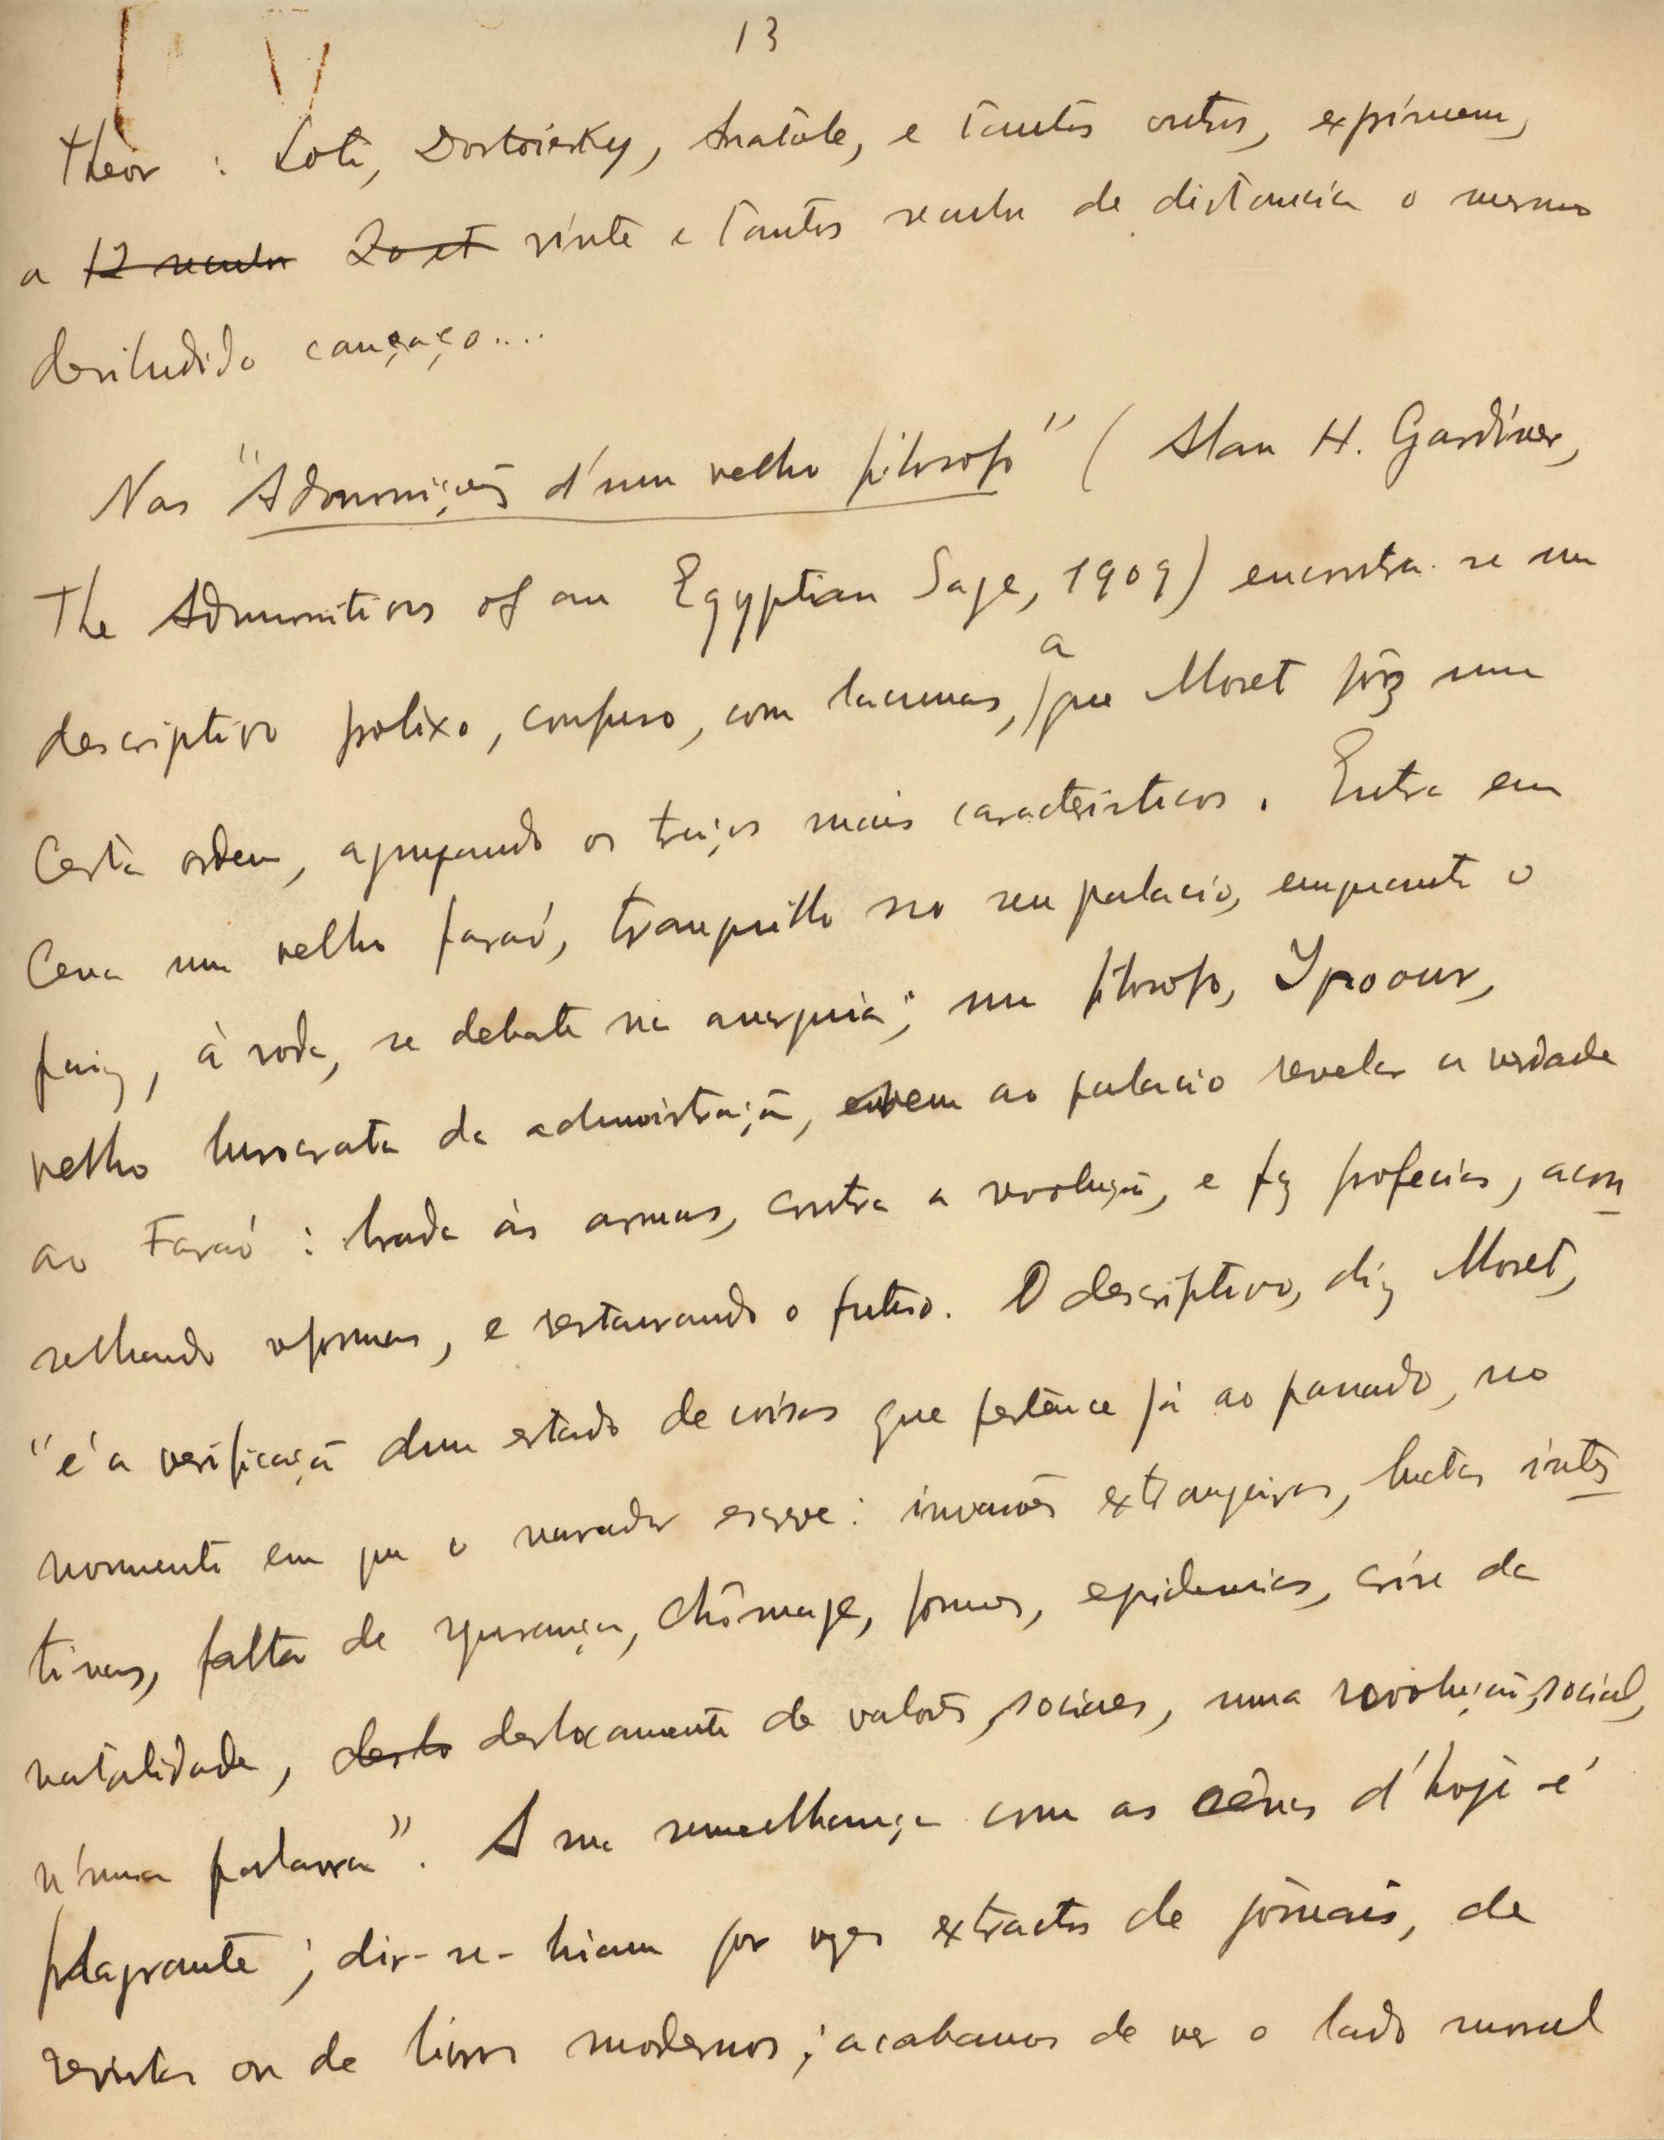 13
theor : Loti, Dostoiesky, Anatole, e tantos outros, exprimem,
a 12 seculos 20 et vinte e tantos seculos de distancia o mesmo
desiludido cançaço....
Nas "Admonições d'um velho filosofo" ( Alan H. Gardiner,
The Admonitions of an Egyptian Sage, 1909) encontra-se um
descriptivo prolixo, confuso, com lacunas, a que Moret pôz uma
certa ordem, agrupando os traços mais caracteristicos. Entra em
cena um velho faraó, tranquillo no seu palacio, emquanto o
paiz, à roda, se debate na anarquia; um filosofo, Ypoour,
velho burocrata da administração, vem ao palacio revelar a verdade
ao Faraó : brada às armas, contra a revolução, e faz profecias, acon
selhando reformas, e restaurando o futuro. O descriptivo, diz Moret,
"é a verificação dum estado de coisas que pertence já ao passado, no
momento em que o narrador escreve: invasões extrangeiras, luctas intes
tinas, falta de segurança, chômage, fomes, epidemias, crise da
natalidade, deslo deslocamento de valores sociaes, uma revolução social,
n'uma palavra". A sua semelhança com as cênas d'hoje é
flagrante ; dir-se-hiam por vezes extractos de jornais, de
revistas ou de livros modernos ; acabamos de ver o lado moral